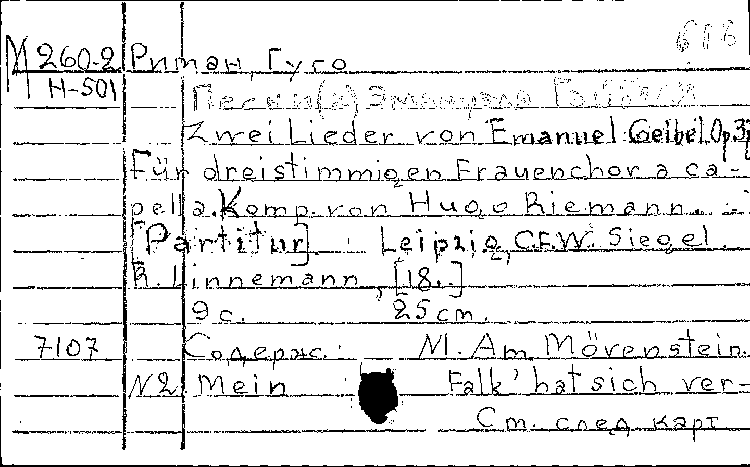 616
М 260-2 Риман, Гуго
Н-501
Песни (2) Эмануэля
Zwei Lieder von Emanuel Geibel. Op. 37
Für dreistimmigen Frauenchor a ca-
pella. Komp. von Hugo Riemann. -
[Partitur]. Leipzig, C.F.W. Siegel.
R. Linnemann, [18..]
9 с. 25 см.
7107 Содерж.: N1. Am Mövenstein.
N2. Mein Falk' hat sich ver-
См. след карт